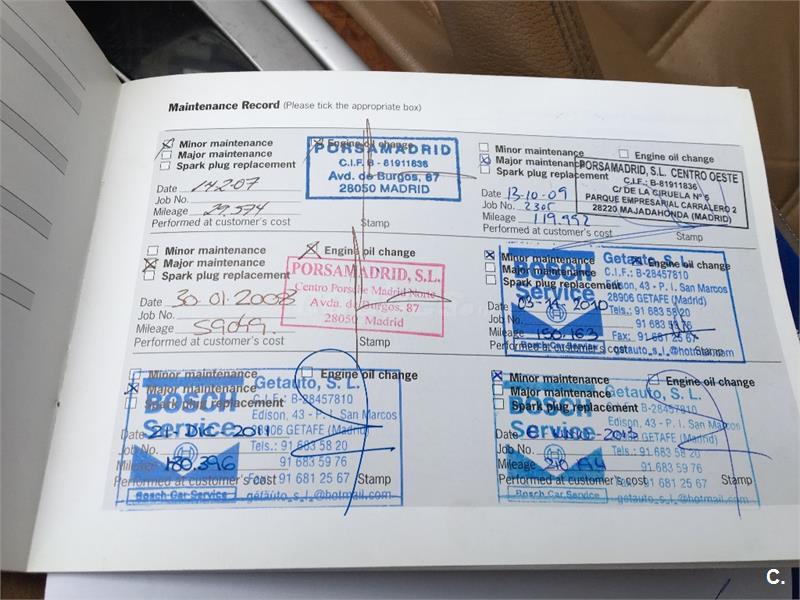 Maintenance Record (Please tick the appropriate box)
Minor maintenance
Engine oil change
Major maintenance
Spark plug replacement
PORSAMADRID
C.I.F. B - 81911836
Avd. de Burgos, 87
28050 MADRID
Date 14.2.07
Job No.
Mileage 29.574
Performed at customer's cost
Stamp
Minor maintenance
Engine oil change
Major maintenance
Spark plug replacement
PORSAMADRID, S.L. CENTRO OESTE
C.I.F.: B-81911836
C/ DE LA CIRUELA Nº 5
PARQUE EMPRESARIAL CARRALERO 2
28220 MAJADAHONDA (MADRID)
Date 13-10-09
Job No. 2305
Mileage 119.992
Performed at customer's cost
Stamp
Minor maintenance
Engine oil change
Major maintenance
Spark plug replacement
PORSAMADRID, S.L.
Centro Porsche Madrid Norte
Avda. de Burgos, 87
28050 Madrid
Date 30.01.2008
Job No.
Mileage 59049.
Performed at customer's cost
Stamp
Minor maintenance
Engine oil change
Major maintenance
Spark plug replacement
BOSCH
Service
Getauto, S. L.
C.I.F.: B-28457810
Edison, 43 - P. I. San Marcos
28906 GETAFE (Madrid)
Tels.: 91 683 58 20
91 683 59 76
Fax: 91 681 25 67
Bosch Car Service
getauto_s_l@hotmail.com
Date 2010
Job No.
Mileage 150.163
Performed at customer's cost
Stamp
Minor maintenance
Engine oil change
Major maintenance
Spark plug replacement
BOSCH
Service
Getauto, S. L.
C.I.F.: B-28457810
Edison, 43 - P. I. San Marcos
28906 GETAFE (Madrid)
Tels.: 91 683 58 20
91 683 59 76
Fax: 91 681 25 67
Bosch Car Service
getauto_s_l@hotmail.com
Date 21 Dic 2011
Job No.
Mileage 180.396
Performed at customer's cost
Stamp
Minor maintenance
Engine oil change
Major maintenance
Spark plug replacement
BOSCH
Service
Getauto, S. L.
B-28457810
Edison, 43 - P. I. San Marcos
GETAFE (Madrid)
Tels.: 91 683 58 20
91 683 59 76
Fax: 91 681 25 67
Bosch Car Service
getauto_s_l@hotmail.com
Date 2013
Job No.
Mileage
Performed at customer's cost
Stamp
C.